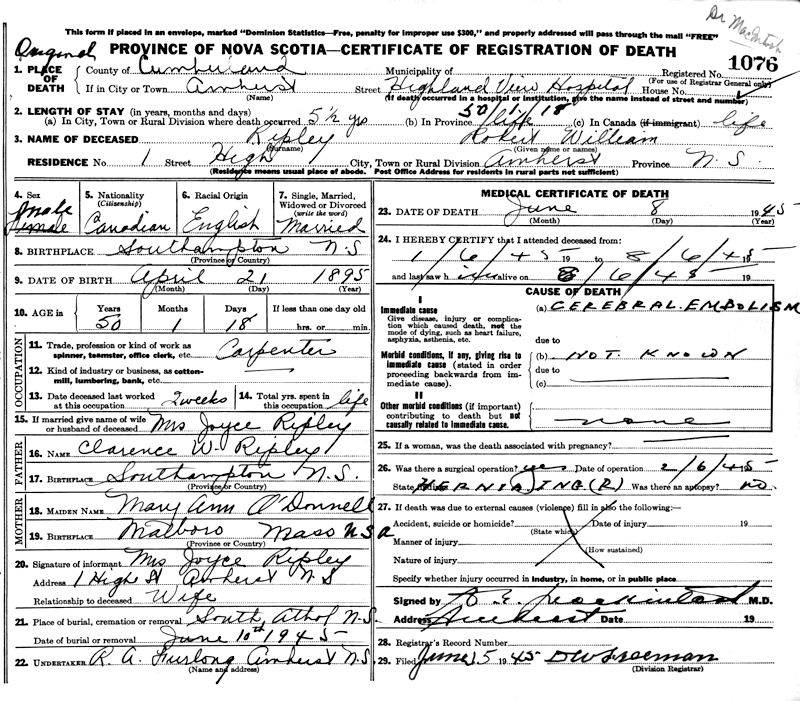 Dr MacIntosh
This form if placed in an envelope, marked "Dominion Statistics—Free, penalty for improper use $300," and properly addressed will pass through the mail "FREE"
Original
PROVINCE OF NOVA SCOTIA—CERTIFICATE OF REGISTRATION OF DEATH
1076
1. PLACE OF DEATH County of Cumberland Municipality of Registered No.
(For use of Registrar General only)
If in City or Town Amherst Street Highland View Hospital House No.
(Name) (If death occurred in a hospital or institution, give the name instead of street and number)
50/1/18
2. LENGTH OF STAY (in years, months and days)
(a) In City, Town or Rural Division where death occurred 5½ yrs (b) In Province life (c) In Canada (if immigrant) life
3. NAME OF DECEASED Ripley Robert William
(Surname) (Given name or names)
RESIDENCE No 1 Street High City, Town or Rural Division Amherst Province N.S.
(Residence means usual place of abode. Post Office Address for residents in rural parts not sufficient)
4. Sex male female
5. Nationality (Citizenship) Canadian
6. Racial Origin English
7. Single, Married, Widowed or Divorced (write the word) Married
8. BIRTHPLACE Southampton N.S
(Province or Country)
9. DATE OF BIRTH April 21 1895
(Month) (Day) (Year)
10. AGE in Years Months Days If less than one day old
50 1 18 hrs. or min.
OCCUPATION
11. Trade, profession or kind of work as spinner, teamster, office clerk, etc. Carpenter
12. Kind of industry or business, as cotton-mill, lumbering, bank, etc.
13. Date deceased last worked at this occupation 2 weeks
14. Total yrs. spent in this occupation life
15. If married give name of wife or husband of deceased Mrs Joyce Ripley
FATHER
16. NAME Clarence W. Ripley
17. BIRTHPLACE Southampton N.S.
(Province or Country)
MOTHER
18. MAIDEN NAME Mary Ann O'Donnell
19. BIRTHPLACE Malboro Mass U S A
(Province or Country)
20. Signature of informant Mrs Joyce Ripley
Address 1 High St Amherst N S
Relationship to deceased Wife
21. Place of burial, cremation or removal South Athol N-S.
Date of burial or removal June 10th 1945
22. UNDERTAKER R. A. Furlong Amherst N.S.
(Name and address)
MEDICAL CERTIFICATE OF DEATH
23. DATE OF DEATH June 8 1945
(Month) (Day) (Year)
24. I HEREBY CERTIFY that I attended deceased from:
1/6/45 19 to 8/6/45 19
and last saw him alive on 8/6/45 19
CAUSE OF DEATH
I
Immediate cause (a) CEREBRAL EMBOLISM
Give disease, injury or complication which caused death, not the mode of dying, such as heart failure, asphyxia, asthenia, etc.
due to
Morbid conditions, if any, giving rise to immediate cause (stated in order proceeding backwards from immediate cause).
(b) NOT KNOWN
due to
(c)
II
Other morbid conditions (if important) contributing to death but not causally related to immediate cause.
none
25. If a woman, was the death associated with pregnancy?
26. Was there a surgical operation? yes Date of operation 2/6/45
State findings HERNIA ING (R) Was there an autopsy? no
27. If death was due to external causes (violence) fill in also the following:—
Accident, suicide or homicide? Date of injury 19
(State which)
Manner of injury
(How sustained)
Nature of injury
Specify whether injury occurred in industry, in home, or in public place
Signed by M.D.
Address Amherst Date 19
28. Registrar's Record Number
29. Filed June 15 1945 D W Freeman
(Division Registrar)